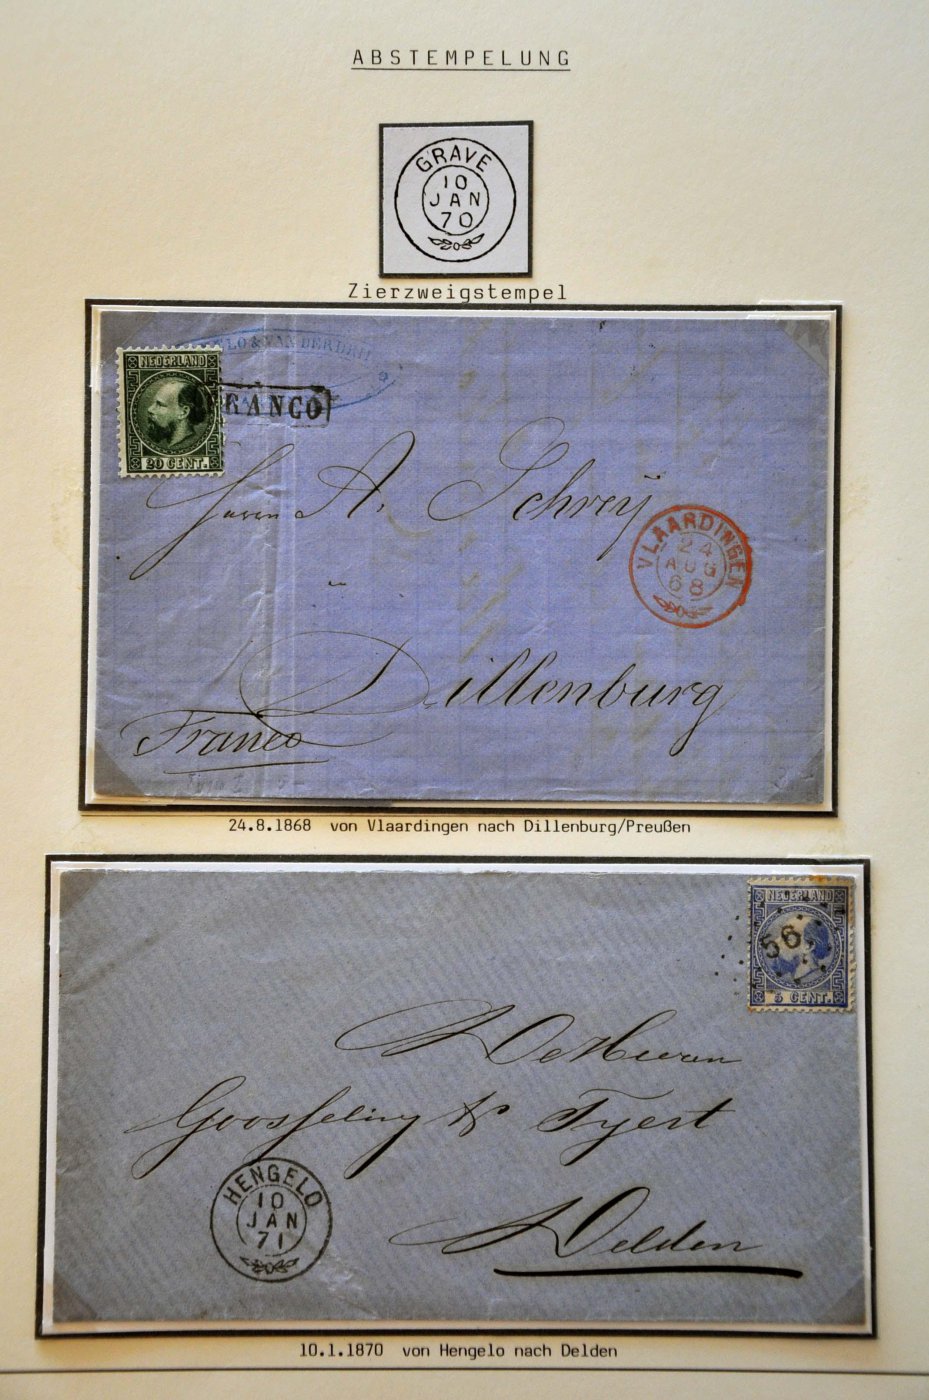 ABSTEMPELUNG
GRAVE
10
JAN
70
Zierzweigstempel
NEDERLAND
20 CENT.
FRANCO
Herrn A. Schreÿ
VLAARDINGEN
24
AUG
68
Dillenburg
Franco
24.8.1868 von Vlaardingen nach Dillenburg/Preußen
NEDERLAND
56
5 CENT.
De Heeren
Goosseling & Tyert
HENGELO
10
JAN
71
Delden
10.1.1870 von Hengelo nach Delden